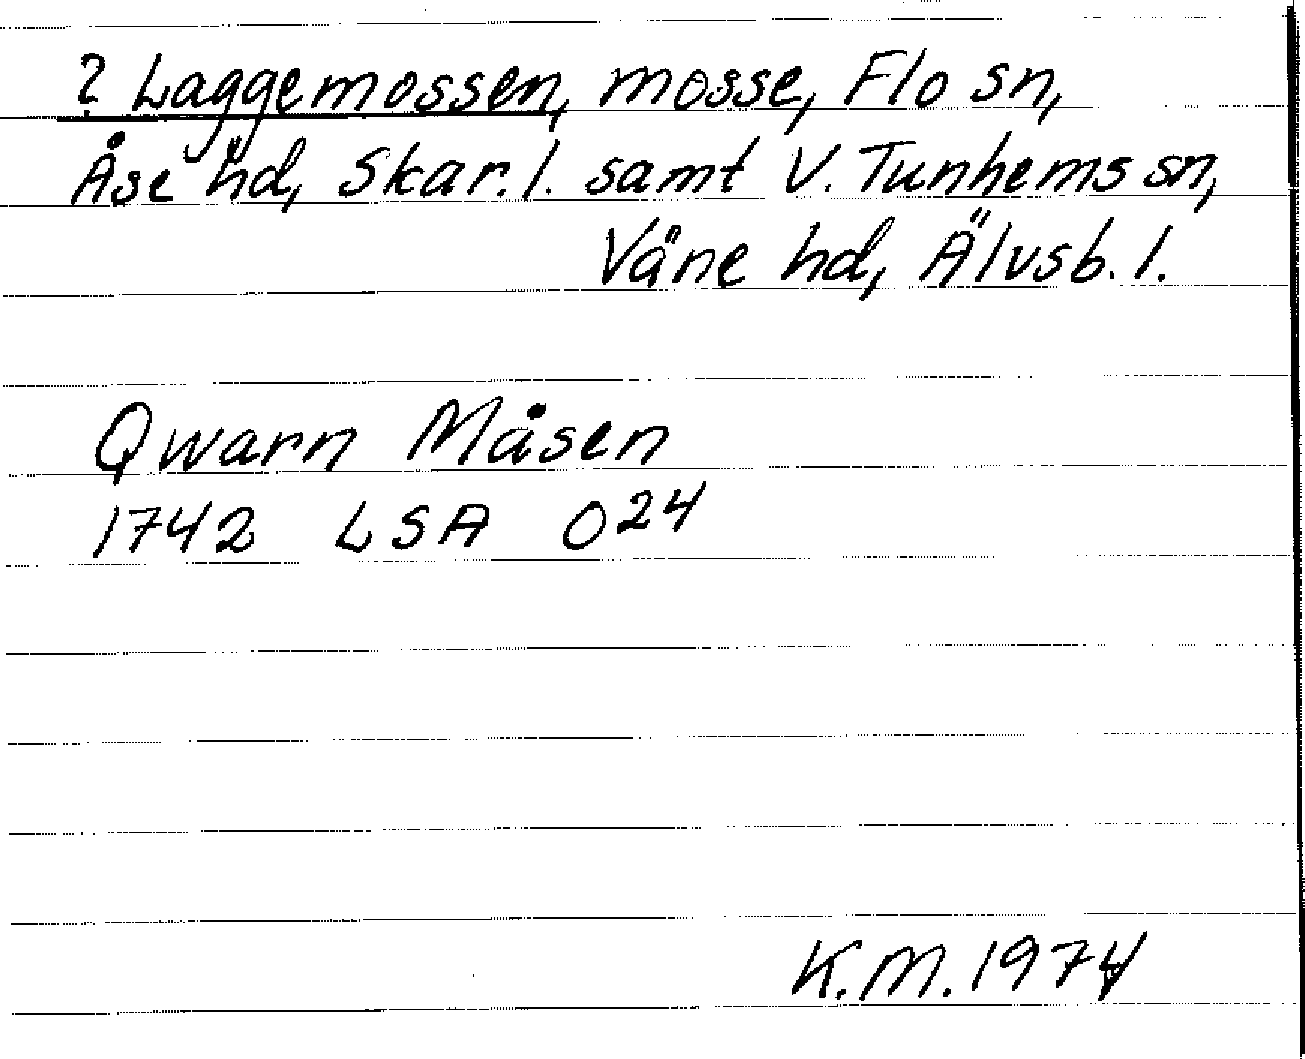 ? Laggemossen, mosse, Flo sn,
Åse hd, Skar. l. samt V. Tunhems sn,
Väne hd, Älvsb. l.
Qwarn Måsen
1742 LSA O24
K.M. 1974